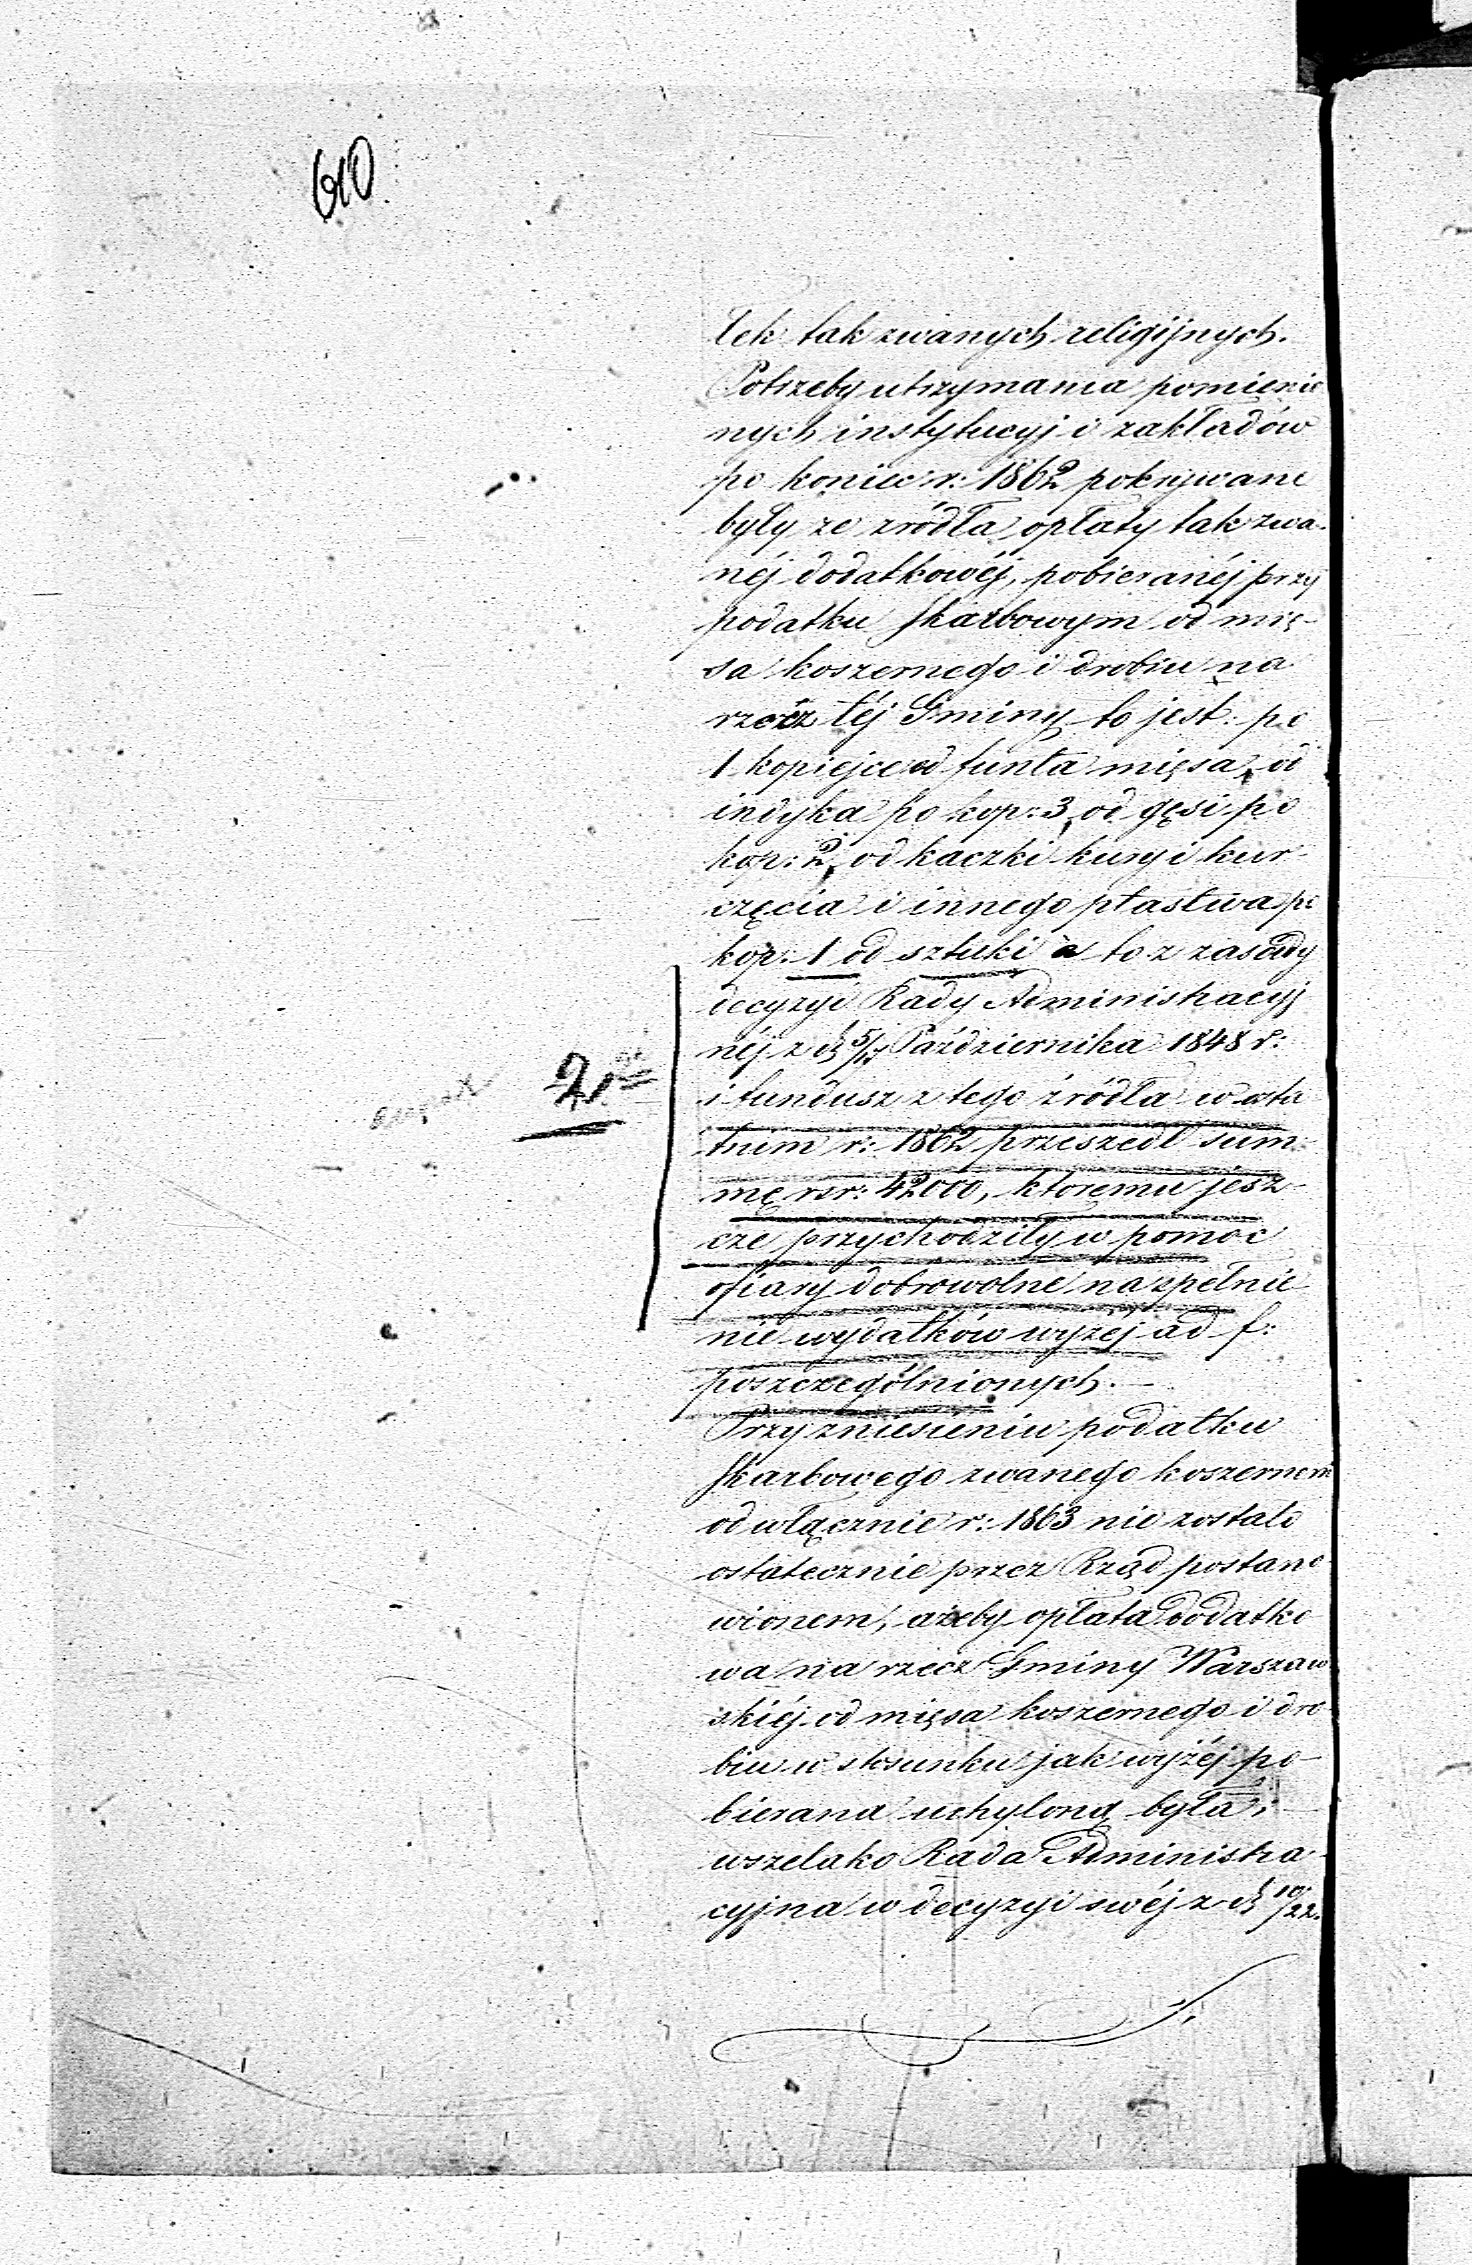 610
łek tak zwanych religijnych.
Potrzeby utrzymania pomienio
nych instytucyj i zakładów
po koniec r: 1862 pokrywane
były ze zródła opłaty tak zwa-
néj dodatkowéj, pobieranéj przy
podatku Skarbowym od mię-
sa koszernego i drobiu na
rzecz téj Gminy to jest: po
1 kopiejce od funta mięsa, od
indyka po kop: 3, od gęsi po
kop: 2, od kaczki kury i kur-
częcia i innego ptastwa po
kop: 1 od sztuki a to z zasady
decyzyi Rady Administracyj
néj z d 5/17 Października 1848 r:
i fundusz z tego źródła w osta
tnim r: 1862 przeszedł sum-
mę rsr: 42000, któremu jesz-
cze przychodziły w pomoc
ofiary dobrowolne na spełnie
nie wydatków wyżéj ad f:
poszczególnionych.—
Przy zniesieniu podatku
Skarbowego zwanego koszernem
od włącznie r: 1863 nie zostało
ostatecznie przez Rząd postano
wionem, ażeby opłata dodatko
wa na rzecz Gminy Warszaw
skiéj od mięsa koszernego i dro
biu w stosunku jak wyżéj po-
bierana uchyloną była;—
wszelako Rada Administra-
cyjna w decyzyi swéj z d 10/22.